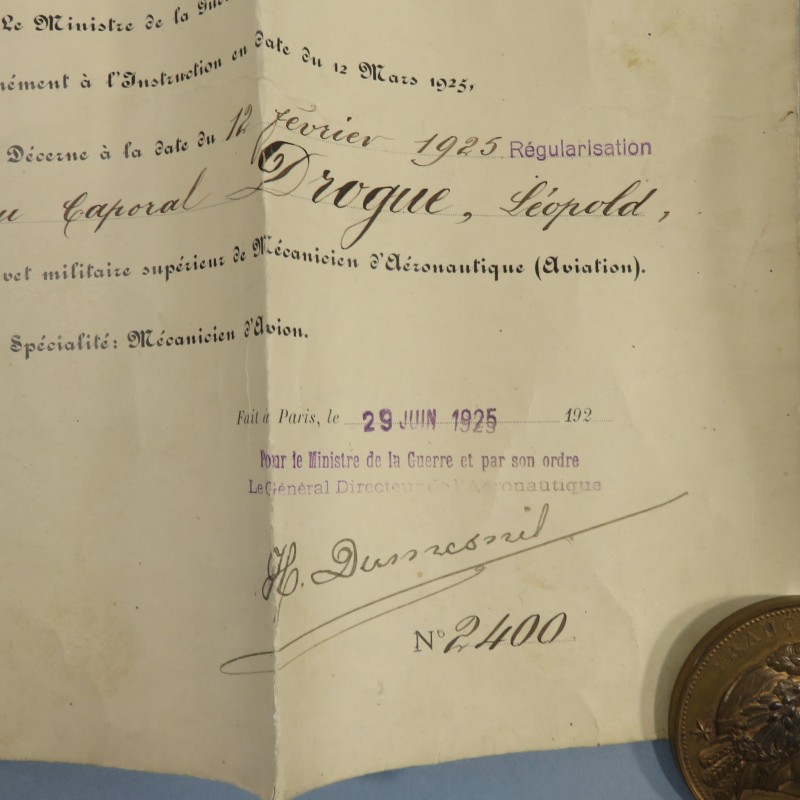 Le Ministre de la
à l'Instruction en date du 12 Mars 1925,
Décerne à la date du 12 février 1925 Régularisation
Caporal Drogue, Léopold,
militaire supérieur de Mécanicien d'Aéronautique (Aviation).
Spécialité: Mécanicien d'Avion.
Fait à Paris, le 29 JUIN 1925 192
Pour le Ministre de la Guerre et par son ordre
Le Général Directeur de l'Aéronautique
H. Dumesnil
N° 2400
FRANC